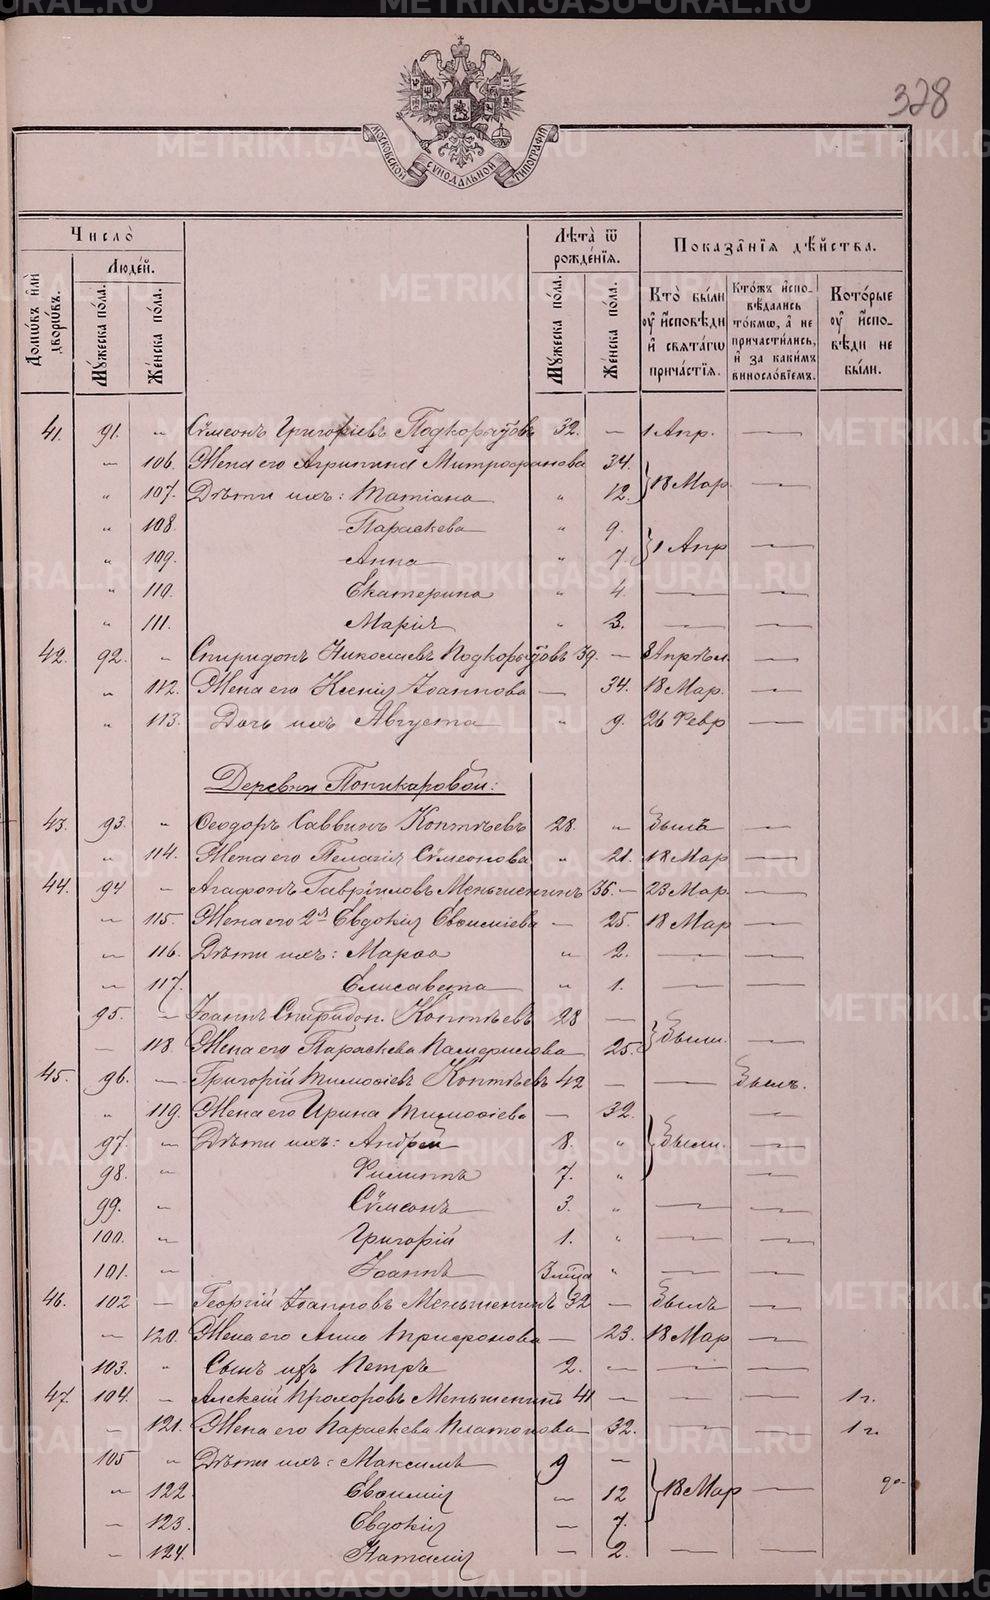 328
МОСКОВСКОЙ СѴНОДАЛЬНОЙ ТИПОГРАФІИ
Число̀
Домѡ́въ и҆лѝ дворѡ́въ.
Люде́й.
Мꙋ́жеска по́ла.
Же́нска по́ла.
Лѣ́та ѿ рожде́нїѧ.
Мꙋ́жеска по́ла.
Же́нска по́ла.
Показа̑нїѧ дѣ́йства.
Кто̀ бы́ли ᲂу҆ и҆́сповѣди и҆ свѧта́гѡ прича́стїѧ.
Кто́жъ и҆спо-вѣ́дались то́кмѡ, а҆ не причасти́лись, и҆ за каки́мъ винослові́емъ.
Кото́рые ᲂу҆ и҆́спо-вѣди не бы́ли.
41. 91. " Сѷмеонъ Григоріевъ Подкорытовъ 32. — 1 Апр. —
— 106. Жена его Агрипина Митрофанова 34. 18 Мар —
" 107. Дѣти ихъ: Татіана " 12.
" 108. Параскева " 9. 1 Апр —
" 109. Анна " 7.
" 110. Екатерина " 4. — —
" 111. Марія " 3. — —
42. 92. " Спиридонъ Николаевъ Подкорытовъ 39. — 8 Апрѣл. —
" 112. Жена его Ксенія Іоаннова — 34. 18 Мар. —
" 113. Дочь ихъ Августа " 9. 26 Февр —
Деревни Поникаровой:
43. 93. " Ѳеодоръ Саввинъ Коптѣевъ 28. " Былъ —
" 114. Жена его Пелагія Сѷмеонова " 21. 18 Мар —
44. 94 — Агафонъ Гавріиловъ Меньшенинъ 36. — 23 Мар —
— 115. Жена его 2я Евдокія Евѳиміева — 25. 18 Мар —
— 116. Дѣти ихъ: Марѳа " 2. — —
— 117. Елисавета " 1. — —
95. — Іоаннъ Спиридон. Коптѣевъ 28 — Были. —
— 118. Жена его Параскева Памфилова 25.
45. 96. — Григорій Тимоѳіевъ Коптѣевъ 42 — — Былъ.
" 119. Жена его Ирина Тимоѳіева — 32. —
97. " Дѣти ихъ: Андрей 8. " Были. —
98. " Филиппъ 7. " —
99. — Сѷмеонъ 3. " — —
100. — Григорій 1. " — —
101. — Іоаннъ " — —
46. 102 — Георгій Іоанновъ Меньшенинъ 32 — Былъ —
— 120. Жена его Анна Трифонова — 23. 18 Мар —
103. " Сынъ ихъ Петръ 2. — — —
47. 104. — Алексій Прохоровъ Меньшенинъ 41 — — — 1 г.
— 121. Жена его Параскева Платонова 32. — — 1 г.
105 " Дѣти ихъ: Максимъ 9 —
" 122. Евѳимія — 12 18 Мар —
— 123. Евдокія — 7.
— 124. Наталія — 2. — —
METRIKI.GASO-URAL.RU